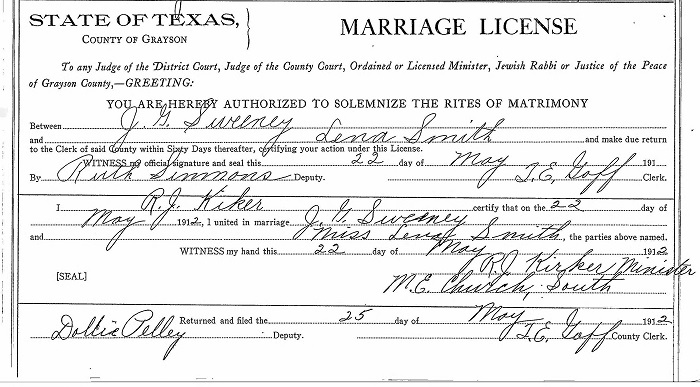 STATE OF TEXAS, MARRIAGE LICENSE
COUNTY OF GRAYSON
To any Judge of the District Court, Judge of the County Court, Ordained or Licensed Minister, Jewish Rabbi or Justice of the Peace
of Grayson County,—GREETING:
YOU ARE HEREBY AUTHORIZED TO SOLEMNIZE THE RITES OF MATRIMONY
Between J. G. Sweeney
and Lena Smith and make due return
to the Clerk of said County within Sixty Days thereafter, certifying your action under this License.
WITNESS my official signature and seal this 22 day of May 191
By Ruth Simmons Deputy. T. E. Goff Clerk.
I R. J. Kiker certify that on the 22 day of
May 1912, I united in marriage J. G. Sweeney
and Miss Lena Smith, the parties above named.
WITNESS my hand this 22 day of May 1912
R. J. Kirker Minister
[SEAL] M. E. Church, South
Returned and filed the 25 day of May 1912
Dollie Pelley Deputy. T. E. Goff County Clerk.